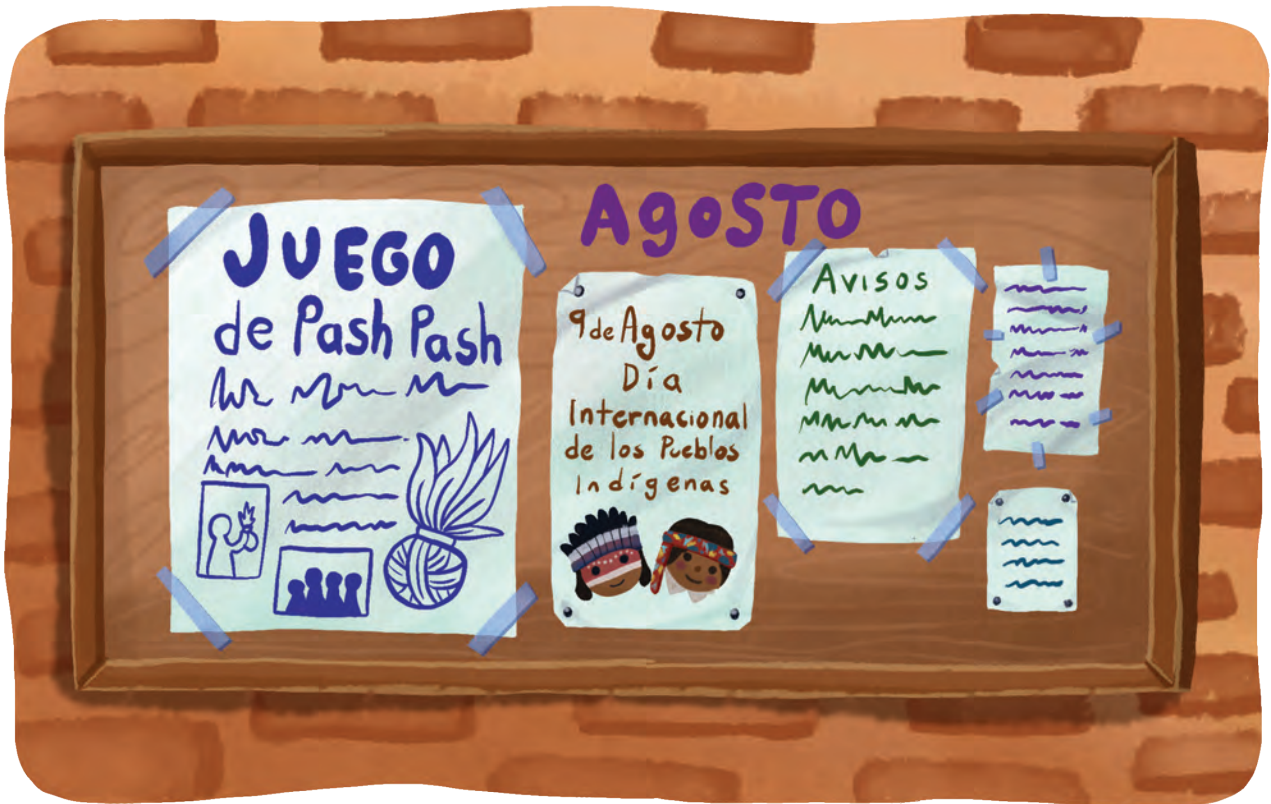 JUEGO
de Pash Pash
AgoSTO
9 de Agosto
Día
Internacional
de los Pueblos
Indígenas
AVISOS